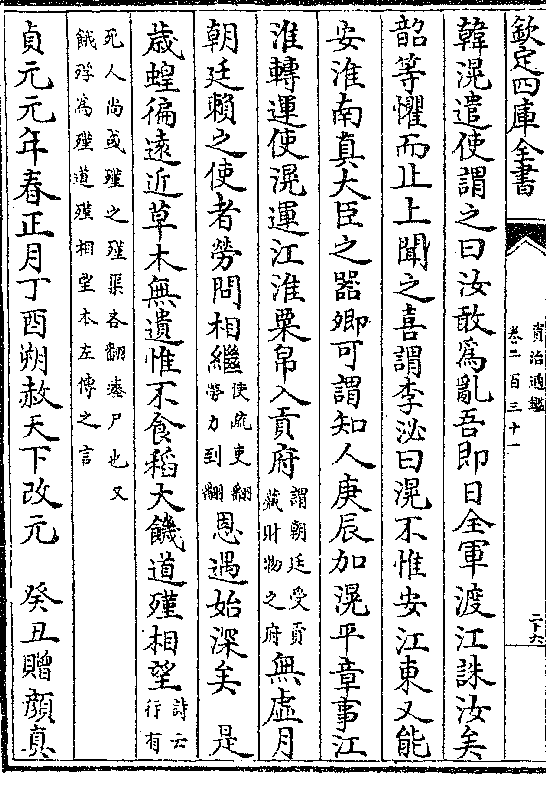 欽定四庫全書
資治通鑑
卷二百三十一
二十六
韓滉遣使謂之曰汝敢為亂吾即日全軍渡江誅汝矣
韶等懼而止上聞之喜謂李泌曰滉不惟安江東又能
安淮南真大臣之器卿可謂知人庚辰加滉平章事江
淮轉運使滉運江淮粟帛入貢府謂朝廷受貢藏財物之府無虛月
朝廷賴之使者勞問相繼使疏吏翻勞力到翻恩遇始深矣 是
歳蝗徧遠近草木無遺惟不食稻大饑道殣相望詩云行有
死人尚或殣之殣渠吝翻瘞尸也又餓殍為殣道殣相望本左傳之言
貞元元年春正月丁酉朔赦天下改元 癸丑贈顔真